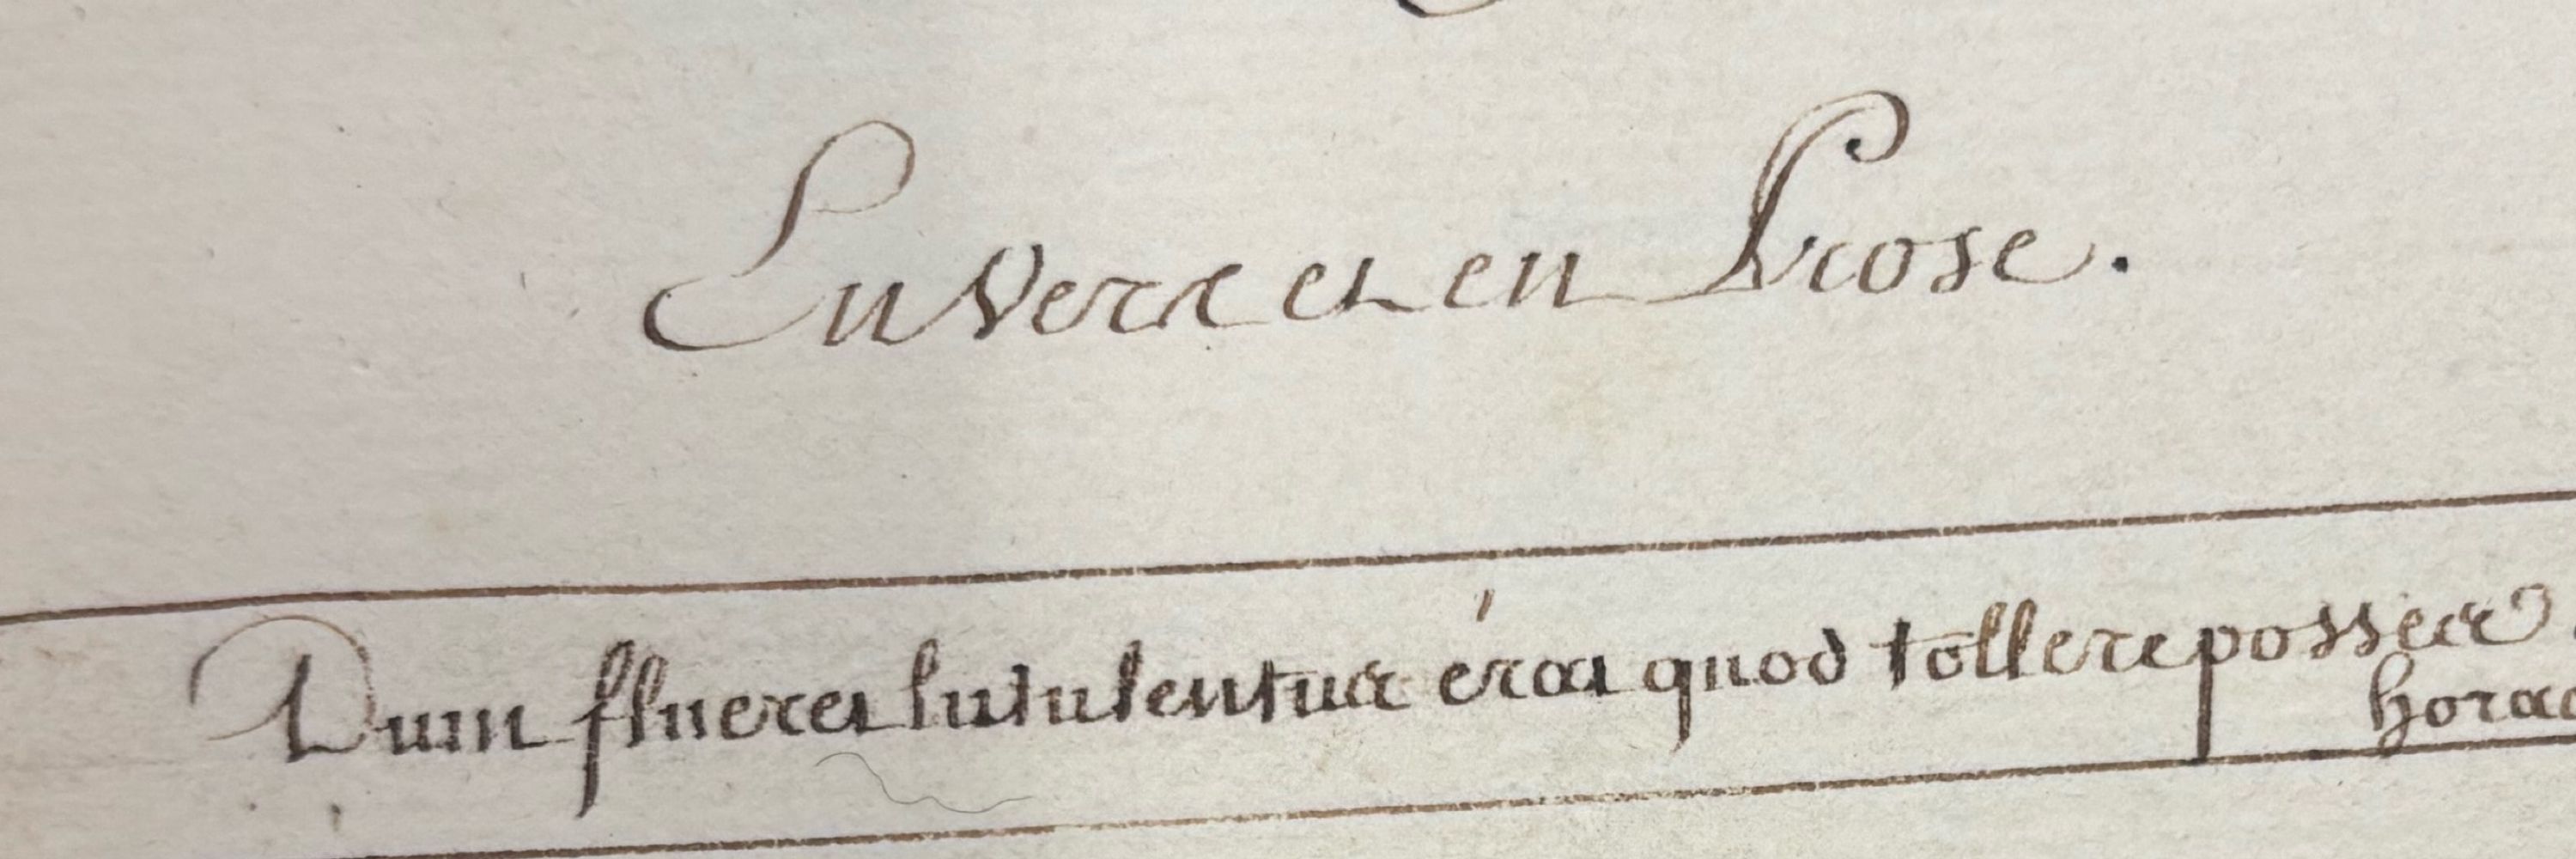 En Vers et en Prose.
Dum flueret lutulentus érat quod tollere posses
horac